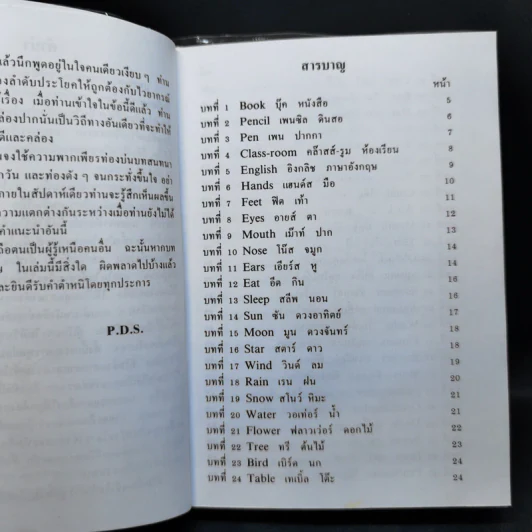 แล้วนึกพูดอยู่ในใจคนเดียวเงียบ ๆ ท่าน
องลำดับประโยคให้ถูกต้องกับไวยากรณ์
เรื่อง เมื่อท่านเข้าใจในข้อนี้ดีแล้ว ท่าน
ล่องปากนั่นเป็นวิธีทางอันเดียวที่จะทำให้
ดีและคล่อง
จงใช้ความพากเพียรท่องบ่นบทสนทนา
วัน และท่องดัง ๆ จนกระทั่งขึ้นใจ อย่า
ภายในสัปดาห์เดียวท่านจะรู้สึกเห็นผลขึ้น
ความแตกต่างกันระหว่างเมื่อท่านยังไม่ได้
คำแนะนำอันนี้
ถือตนเป็นผู้รู้เหนือคนอื่น ฉะนั้นหากบท
ในเล่มนี้มีสิ่งใด ผิดพลาดไปบ้างแล้ว
ละยินดีรับคำตำหนิโดยทุกประการ
P.D.S.
สารบาญ
หน้า
บทที่ 1 Book บุ๊ค หนังสือ 5
บทที่ 2 Pencil เพนซิล ดินสอ 6
บทที่ 3 Pen เพน ปากกา 7
บทที่ 4 Class-room คล๊าสส์-รูม ห้องเรียน 8
บทที่ 5 English อิงกลิช ภาษาอังกฤษ 9
บทที่ 6 Hands แฮนด์ส มือ 10
บทที่ 7 Feet ฟิต เท้า 11
บทที่ 8 Eyes อายส์ ตา 12
บทที่ 9 Mouth เม๊าท์ ปาก 13
บทที่ 10 Nose โน๊ส จมูก 14
บทที่ 11 Ears เอียร์ส หู 14
บทที่ 12 Eat อีต กิน 16
บทที่ 13 Sleep สลีพ นอน 16
บทที่ 14 Sun ซัน ดวงอาทิตย์ 17
บทที่ 15 Moon มูน ดวงจันทร์ 18
บทที่ 16 Star สตาร์ ดาว 18
บทที่ 17 Wind วินด์ ลม 19
บทที่ 18 Rain เรน ฝน 20
บทที่ 19 Snow สโนว์ หิมะ 21
บทที่ 20 Water วอเท่อร์ น้ำ 21
บทที่ 21 Flower ฟลาวเว่อร์ ดอกไม้ 22
บทที่ 22 Tree ทรี ต้นไม้ 23
บทที่ 23 Bird เบิร์ด นก 24
บทที่ 24 Table เทเบิ้ล โต๊ะ 24